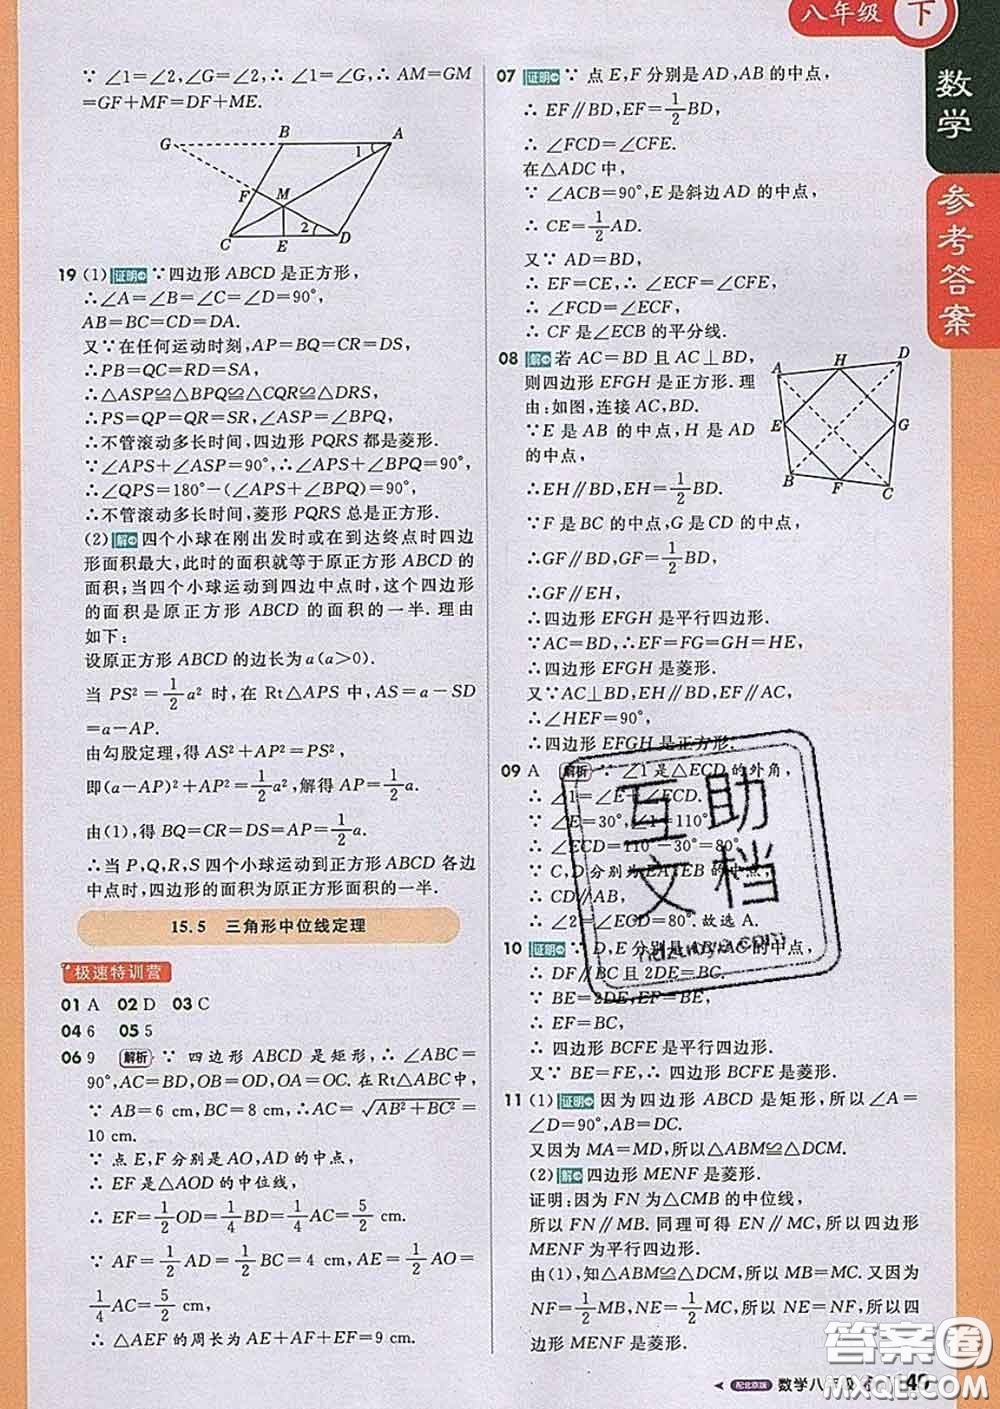 八年级 下
数学
参考答案
∵ ∠1=∠2,∠G=∠2,∴ ∠1=∠G,∴ AM=GM
=GF+MF=DF+ME.
G B A 1
F M
C E 2 D
19 (1) 证明 ∵四边形 ABCD 是正方形,
∴∠A=∠B=∠C=∠D=90°,
AB=BC=CD=DA.
又∵在任何运动时刻,AP=BQ=CR=DS,
∴PB=QC=RD=SA,
∴△ASP≌△BPQ≌△CQR≌△DRS,
∴PS=QP=QR=SR,∠ASP=∠BPQ,
∴不管滚动多长时间,四边形 PQRS 都是菱形.
∵∠APS+∠ASP=90°,∴∠APS+∠BPQ=90°,
∴∠QPS=180°-(∠APS+∠BPQ)=90°,
∴不管滚动多长时间,菱形 PQRS 总是正方形.
(2) 解 四个小球在刚出发时或在到达终点时四边
形面积最大,此时的面积就等于原正方形 ABCD 的
面积;当四个小球运动到四边中点时,这个四边形
的面积是原正方形 ABCD 的面积的一半. 理由
如下:
设原正方形 ABCD 的边长为 a(a>0).
当 PS²=1/2a² 时,在 Rt△APS 中,AS=a-SD
=a-AP.
由勾股定理,得 AS²+AP²=PS²,
即(a-AP)²+AP²=1/2a²,解得 AP=1/2a.
由(1),得 BQ=CR=DS=AP=1/2a.
∴当 P,Q,R,S 四个小球运动到正方形 ABCD 各边
中点时,四边形的面积为原正方形面积的一半.
15.5 三角形中位线定理
极速特训营
01 A 02 D 03 C
04 6 05 5
06 9 解析 ∵ 四边形 ABCD 是矩形,∴ ∠ABC=
90°,AC=BD,OB=OD,OA=OC. 在 Rt△ABC 中,
∵ AB=6 cm,BC=8 cm,∴ AC=√(AB²+BC²)=
10 cm.
∵ 点 E,F 分别是 AO,AD 的中点,
∴ EF 是△AOD 的中位线,
∴ EF=1/2OD=1/4BD=1/4AC=5/2 cm.
∵ AF=1/2AD=1/2BC=4 cm,AE=1/2AO=
1/4AC=5/2 cm,
∴ △AEF 的周长为 AE+AF+EF=9 cm.
07 证明 ∵ 点 E,F 分别是 AD,AB 的中点,
∴ EF∥BD,EF=1/2BD,
∴ ∠FCD=∠CFE.
在△ADC 中,
∵ ∠ACB=90°,E 是斜边 AD 的中点,
∴ CE=1/2AD.
又∵ AD=BD,
∴ EF=CE,∴ ∠ECF=∠CFE,
∴ ∠FCD=∠ECF,
∴ CF 是∠ECB 的平分线.
08 解 若 AC=BD 且 AC⊥BD,
则四边形 EFGH 是正方形. 理
由:如图,连接 AC,BD.
∵E 是 AB 的中点,H 是 AD
的中点,
A H D
E G
B F C
∴EH∥BD,EH=1/2BD.
∵F 是 BC 的中点,G 是 CD 的中点,
∴GF∥BD,GF=1/2BD,
∴GF∥EH,
∴四边形 EFGH 是平行四边形.
∵AC=BD,∴EF=FG=GH=HE,
∴四边形 EFGH 是菱形.
又∵AC⊥BD,EH∥BD,EF∥AC,
∴∠HEF=90°,
∴四边形 EFGH 是正方形.
09 A 解析 ∵ ∠1 是△ECD 的外角,
∴ ∠1=∠E+∠ECD.
∵ ∠E=30°,∠1=110°,
∴ ∠ECD=110°-30°=80°.
∵ C,D 分别为 EA,EB 的中点,
∴ CD∥AB,
∴ ∠2=∠ECD=80°. 故选 A.
10 证明 ∵ D,E 分别是 AB,AC 的中点,
∴ DF∥BC 且 2DE=BC.
∵ BE=2DE,EF=BE,
∴ EF=BC,
∴ 四边形 BCFE 是平行四边形.
又∵ BE=FE,∴ 四边形 BCFE 是菱形.
11 (1) 证明 因为四边形 ABCD 是矩形,所以∠A=
∠D=90°,AB=DC.
又因为 MA=MD,所以△ABM≌△DCM.
(2) 解 四边形 MENF 是菱形.
证明:因为 FN 为△CMB 的中位线,
所以 FN∥MB. 同理可得 EN∥MC,所以四边形
MENF 为平行四边形.
由(1),知△ABM≌△DCM,所以 MB=MC. 又因为
NF=1/2MB,NE=1/2MC,所以 NE=NF,所以四
边形 MENF 是菱形.
互助
文档
答案圈
配北京版 数学八年级 49